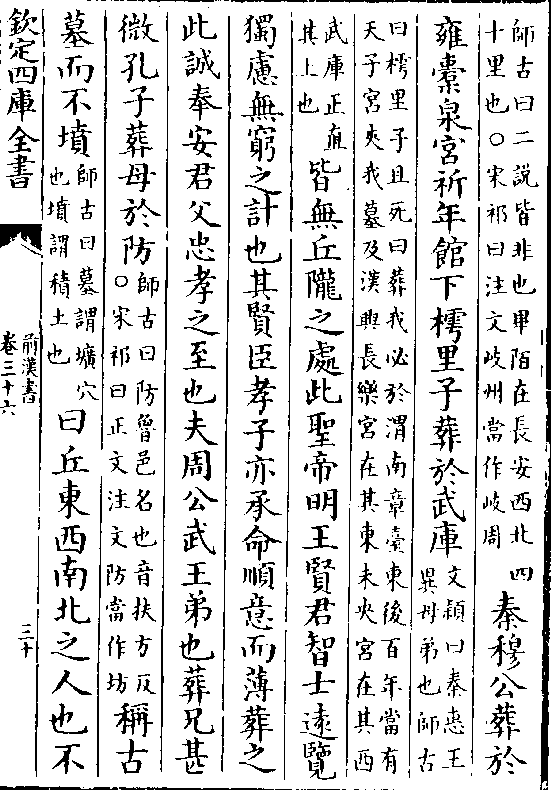 師古曰二說皆非也畢陌在長安西北四
十里也○宋祁曰注文岐州當作岐周
秦穆公葬於
雍橐泉宮祈年館下樗里子葬於武庫
文穎曰秦惠王
異母弟也師古
曰樗里子且死曰葬我必於渭南章臺東後百年當有
天子宮夾我墓及漢興長樂宮在其東未央宮在其西
武庫正直
其上也
皆無丘隴之處此聖帝明王賢君智士遠覽
獨慮無窮之計也其賢臣孝子亦承命順意而薄葬之
此誠奉安君父忠孝之至也夫周公武王弟也葬兄甚
微孔子葬母於防
師古曰防魯邑名也音扶方反
○宋祁曰正文注文防當作坊
稱古
墓而不墳
師古曰墓謂壙穴
也墳謂積土也
曰丘東西南北之人也不
欽定四庫全書
前漢書
卷三十六
三十